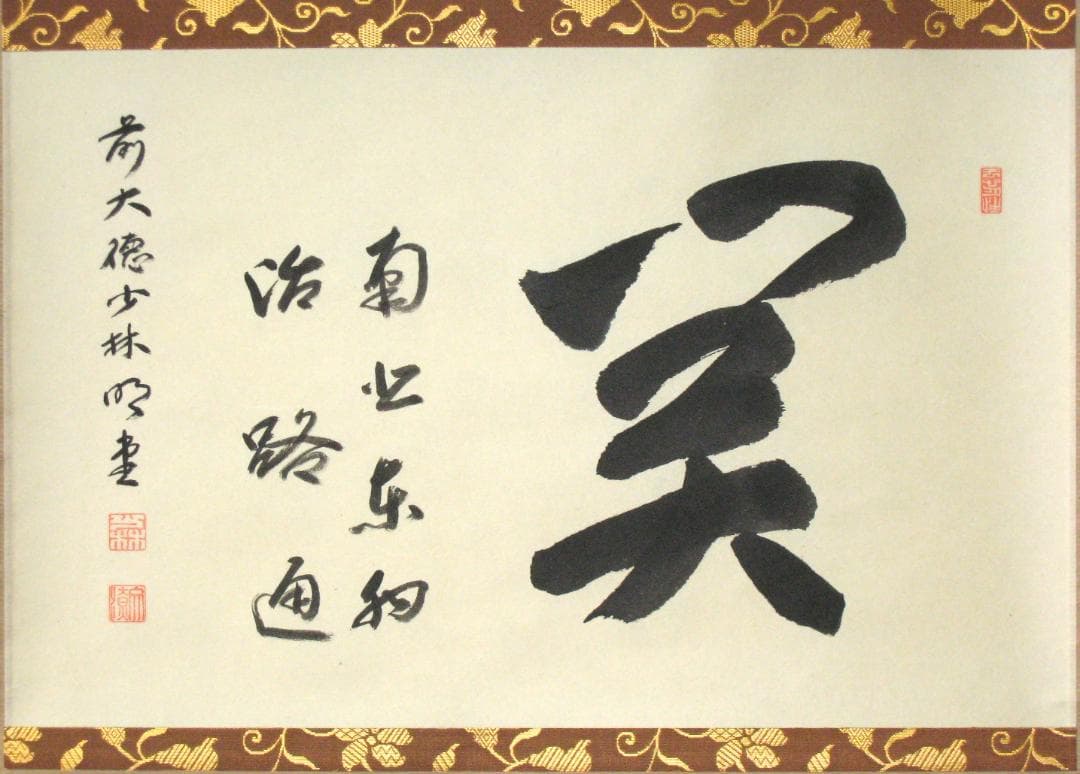 関
南北東西
活路通
前大徳少林明堂